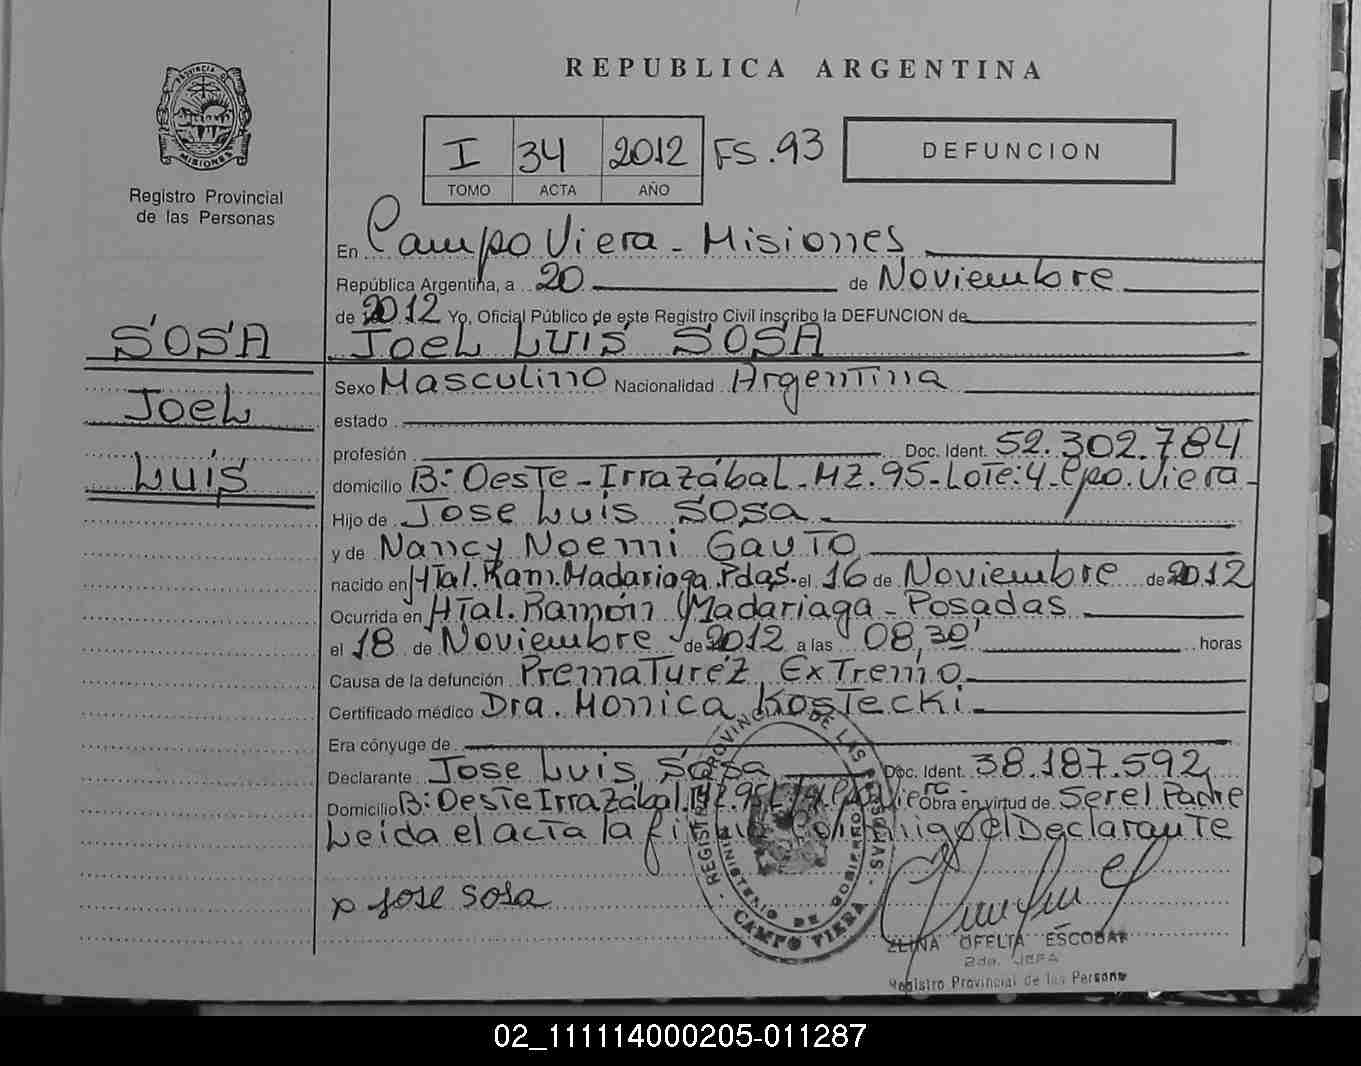 REPUBLICA ARGENTINA
PROVINCIA DE MISIONES
Registro Provincial
de las Personas
I 34 2012 FS.93
TOMO ACTA AÑO
DEFUNCION
En Campo Viera - Misiones
República Argentina, a 20 de Noviembre
de 2012 Yo, Oficial Público de este Registro Civil inscribo la DEFUNCION de
SOSA
JoeL LUIS SOSA
Sexo Masculino Nacionalidad Argentina
JoeL
estado
profesión Doc. Ident. 52.302.784
LUIS
domicilio B: Oeste - Irrazábal - MZ. 95 - Lote: 4 - Cpo. Viera -
Hijo de Jose Luis Sosa
y de Nancy Noemi Gauto
nacido en Htal. Ram. Madariaga. Pdas. el 16 de Noviembre de 2012
Ocurrida en Htal. Ramón Madariaga - Posadas
el 18 de Noviembre de 2012 a las 08,30' horas
Causa de la defunción Prematuréz Extremo
Certificado médico Dra. Monica Kostecki
Era cónyuge de
Declarante Jose Luis Sosa Doc. Ident. 38.187.592
Domicilio B: Oeste Irrazábal. MZ. 95 Viera - Obra en virtud de Ser el Padre
Leída el acta la conmigo el Declarante
REGISTRO PROVINCIAL DE LAS PERSONAS
MINISTERIO DE GOBIERNO
CAMPO VIERA
p Jose Sosa
ZLINA OFELIA ESCOBAR
2da. JEFA
Registro Provincial de las Persona
02_111114000205-011287